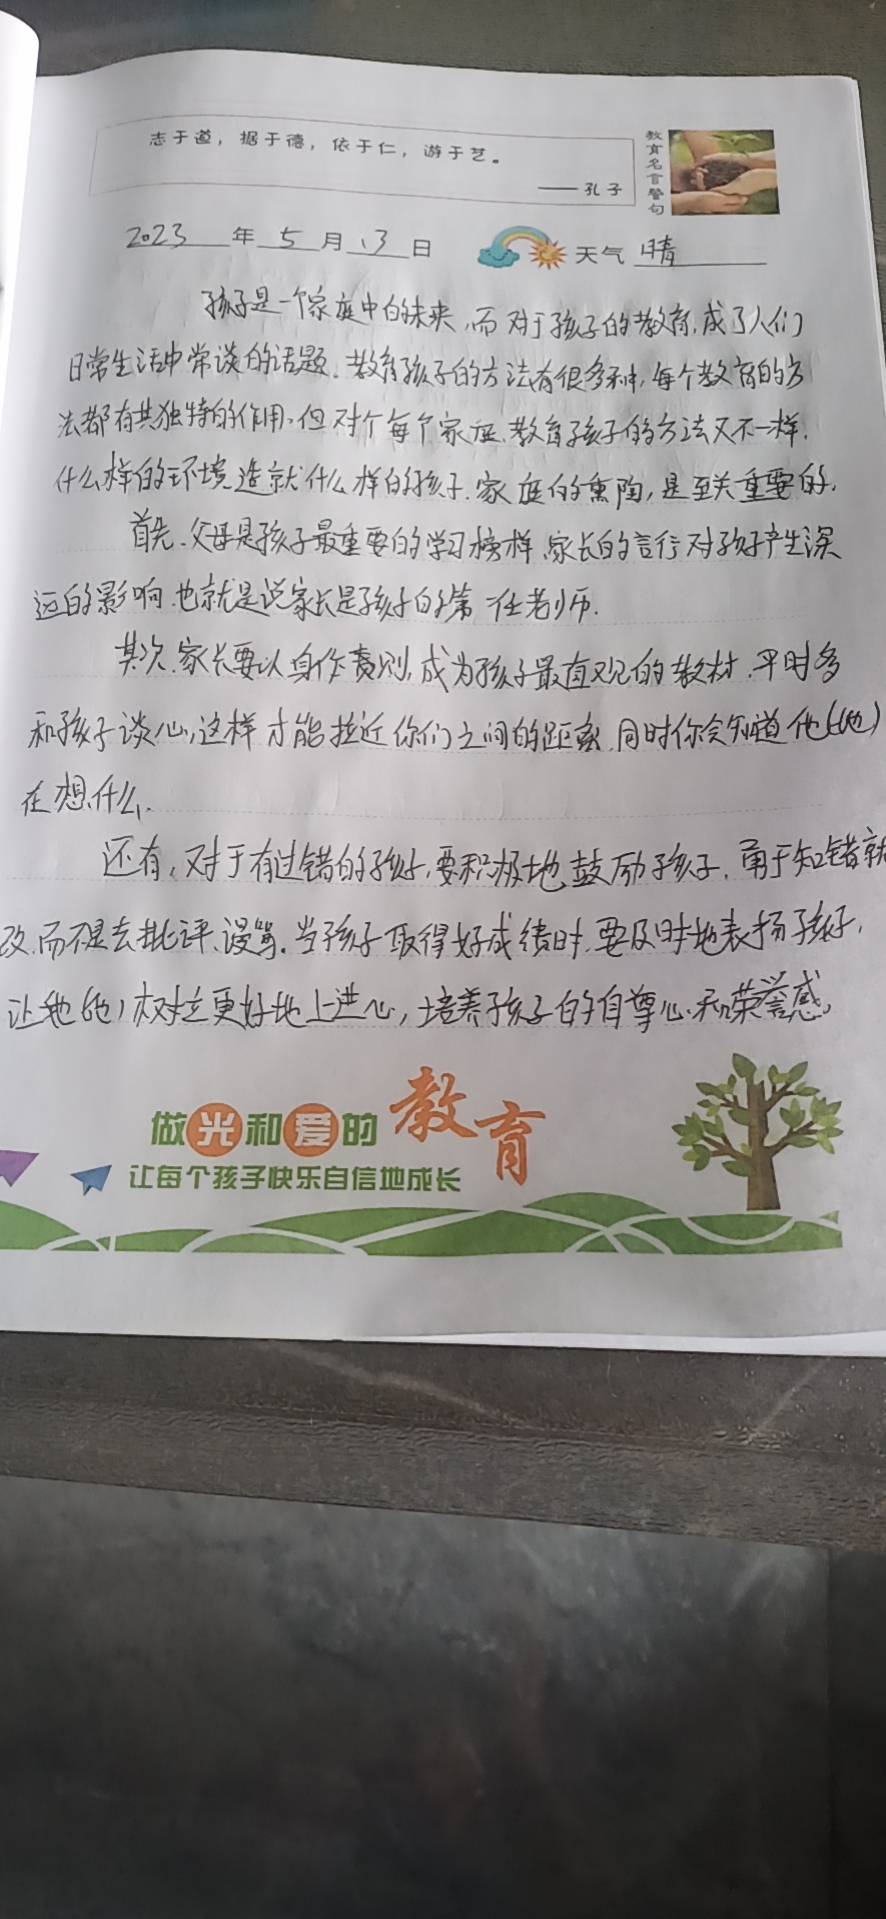 志于道，据于德，依于仁，游于艺。
——孔子
教育名言警句
2023年5月13日 天气 晴
孩子是一个家庭中的未来,而对于孩子的教育,成了人们
日常生活中常谈的话题.教育孩子的方法有很多种,每个教育的方
法都有其独特的作用.但对个每个家庭.教育孩子的方法又不一样.
什么样的环境造就什么样的孩子.家庭的熏陶,是至关重要的.
首先.父母是孩子最重要的学习榜样.家长的言行对孩子产生深
远的影响.也就是说家长是孩子的第一任老师.
其次.家长要以身作责则,成为孩子最直观的教材.平时多
和孩子谈心,这样才能拉近你们之间的距离.同时你会知道他(她)
在想什么.
还有,对于有过错的孩子,要积极地鼓励孩子.勇于知错就
改.而不是去批评.谩骂.当孩子取得好成绩时.要及时地表扬孩子,
让他(她)树立更好地上进心,培养孩子的自尊心.和荣誉感。
做光和爱的教育
让每个孩子快乐自信地成长